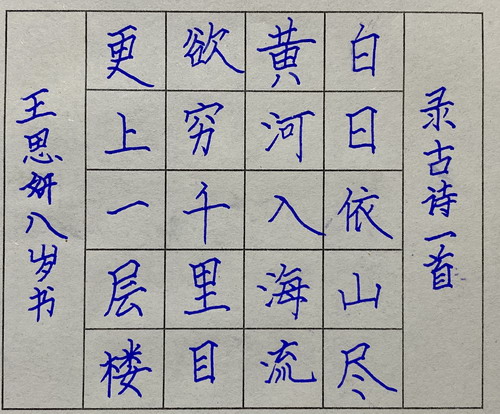 录古诗一首
白日依山尽
黄河入海流
欲穷千里目
更上一层楼
王思妍八岁书